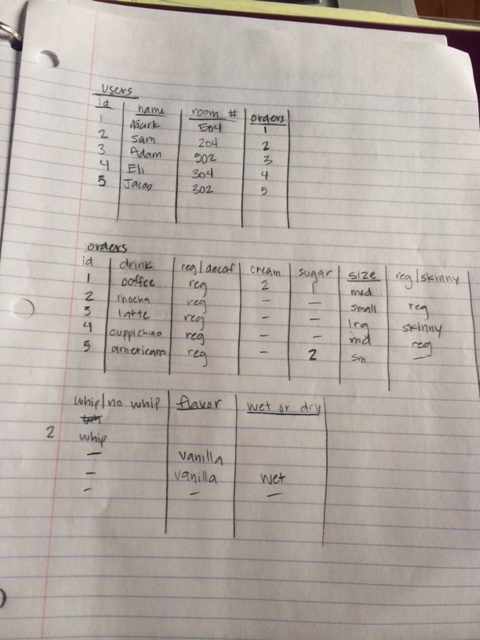 users
id name room # orders
1 Mark 504 1
2 Sam 204 2
3 Adam 502 3
4 Eli 304 4
5 Jacob 302 5
orders
id drink reg/decaf cream sugar size reg/skinny
1 coffee reg 2 1 med
2 mocha reg - - small reg
3 latte reg - - lrg skinny
4 cuppichino reg - - md reg
5 americano reg - 2 sm -
whip/no whip flavor wet or dry
2 whip
- vanilla
- vanilla wet
- - -